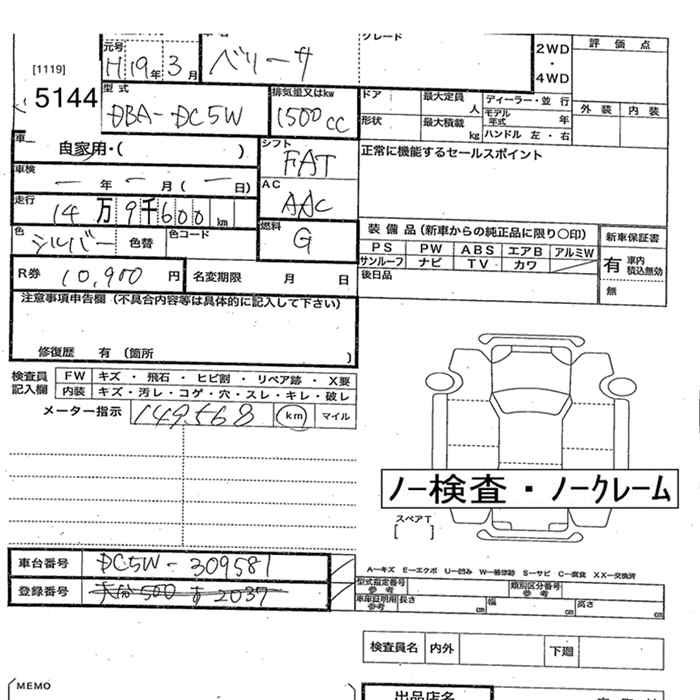 元号 車名 グレード
H19年3月 ベリーサ
2WD・4WD
評価点
外装 内装
[1119]
5144
型式 DBA-DC5W
排気量又はkw 1500cc
ドア 最大定員 人
形状 最大積載 kg
ディーラー・並行
モデル年式 年
ハンドル 左・右
車 自家用・( )
シフト FAT
正常に機能するセールスポイント
車検 ー年ー月(ー日)
AC AAC
走行 14万9千600km
色 シルバー 色替 色コード
燃料 G
装備品(新車からの純正品に限り〇印)
PS PW ABS エアB アルミW
サンルーフ ナビ TV カワ
後日品
新車保証書
有 車内積込無効
無
R券 10,900円 名変期限 月 日
注意事項申告欄(不具合内容等は具体的に記入して下さい)
修復歴 有 (箇所 )
検査員記入欄
FW キズ・飛石・ヒビ割・リペア跡・X要
内装 キズ・汚レ・コゲ・穴・スレ・キレ・破レ
メーター指示 149,568 km マイル
ノー検査・ノークレーム
スペアT
[ ]
車台番号 DC5W-309581
登録番号 大分500す2037
A−キズ E−エクボ U−凹み W−補修跡 S−サビ C−腐食 XX−交換済
型式指定番号 参考 類別区分番号 参考
車庫証明用 参考 長さ cm 幅 cm 高さ cm
検査員名 内外 下廻
MEMO
出品店名